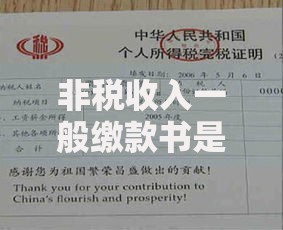 中华人民共和国
个人所得税完税证明
税
纳税人姓名
2006 年 5 月 6
纳税项目
工资薪金所得
2005年度
其他各项所得
合计
非税收入一
般缴款书是
感谢您为祖国繁荣昌盛做出的贡献!
Thank you for your contribution to
China's flourish and prosperity!